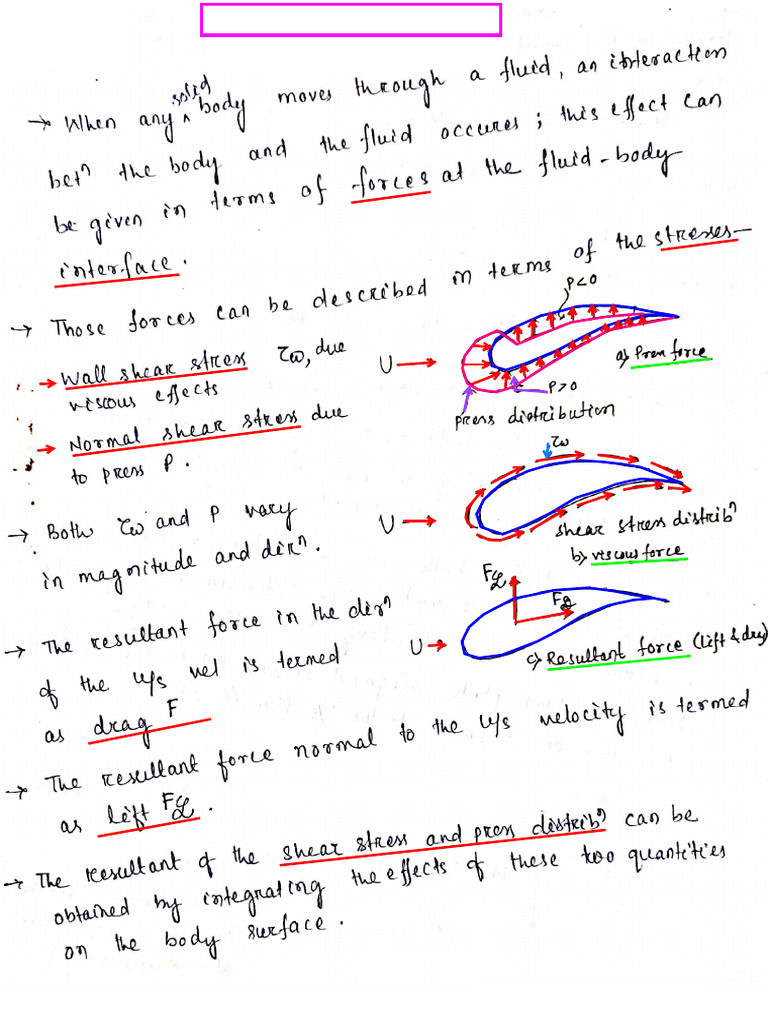 → When any solid body moves through a fluid, an interaction
betⁿ the body and the fluid occures; this effect can
be given in terms of forces at the fluid-body
interface.
→ Those forces can be described in terms of the stresses—
→ Wall shear stress τω, due
viscous effects
→ Normal shear stress due
to press P.
U →
P<0
a) Press force
P>0
press distribution
→ Both τω and P vary
in magnitude and dirⁿ.
U →
τω
shear stress distribⁿ
b) viscous force
→ The resultant force in the dirⁿ
of the u/s vel is termed
as drag F
U →
Fℒ
F𝒟
c) Resultant force (lift & drag)
→ The resultant force normal to the u/s velocity is termed
as lift Fℒ.
→ The resultant of the shear stress and press distribⁿ can be
obtained by integrating the effects of these two quantities
on the body surface.